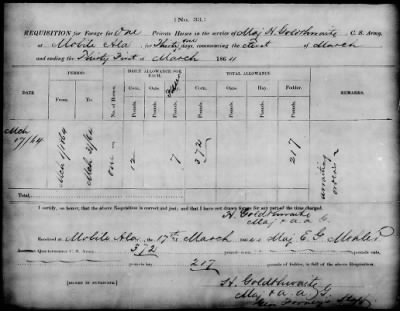 [No. 33.]
REQUISITION for Forage for One Private Horses in the service of Maj H. Goldthwaite C. S. Army,
at Mobile Ala for Thirty one days, commencing the first of March
and ending the Thirty First of March 1864
DATE. PERIOD DAILY ALLOWANCE FOR EACH. TOTAL ALLOWANCE REMARKS.
From. To. No. of Horses. Corn. Oats. Fodder Corn. Oats. Fodder.
Pounds. Pounds. Pounds. Pounds. Pounds. Pounds.
Mch 17/64 Mch 1/64 Mch 31/64 one 12 7 372 217 awaiting orders
Total.
I certify, on honor, that the above Requisition is correct and just; and that I have not drawn forage for any part of the time charged.
H. Goldthwaite
Maj & A. A. G.
Received at Mobile Ala the 17th March 1864 of Maj E. G. Mohler
Quartermaster C. S. Army, 372 pounds corn, pounds oats,
pounds hay 217 pounds of fodder, in full of the above Requisition.
[SIGNED IN DUPLICATE.]
H. Goldthwaite
Maj & A. A. G.
Staff